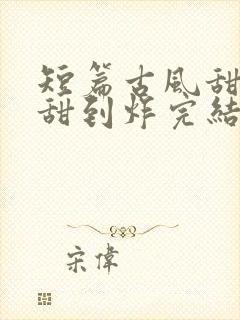 短篇古风甜
甜到炸完結
宋偉